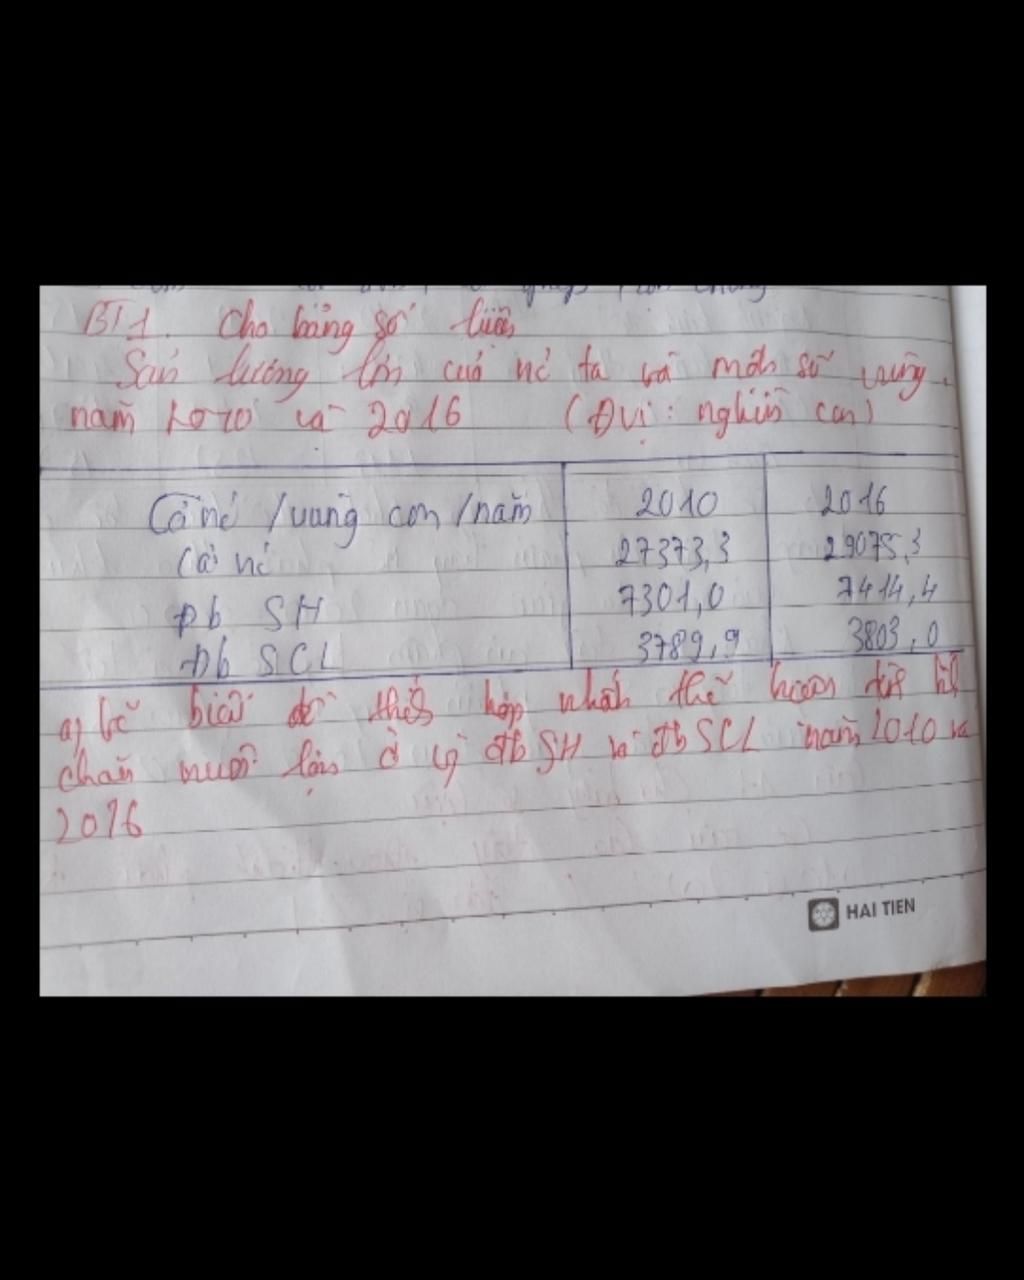 BT1. Cho bảng số liệu
Sản lượng lợn của nc ta và một số vùng
năm 2010 và 2016 (Đvị: nghìn con)
Cả nc /vùng con /năm 2010 2016
Cả nc 27373,3 29075,3
Đb SH 7301,0 7414,4
Đb SCL 3789,9 3803,0
a) Vẽ biểu đồ thích hợp nhất thể hiện
chăn nuôi lợn ở đb SH và đb SCL năm 2010 và
2016
HAI TIEN